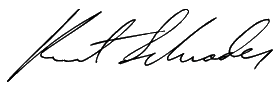 Kurt Schrader